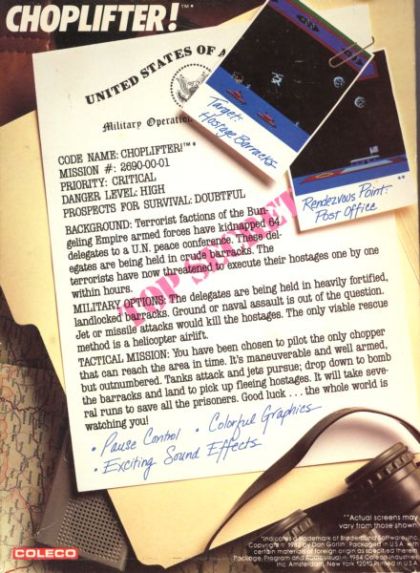 CHOPLIFTER!™*
UNITED STATES OF A
Military Operatio
Target:
Hostage Barracks
Rendezvous Point:
Post Office
CODE NAME: CHOPLIFTER!™*
MISSION #: 2690-00-01
PRIORITY: CRITICAL
DANGER LEVEL: HIGH
PROSPECTS FOR SURVIVAL: DOUBTFUL
TOP SECRET
BACKGROUND: Terrorist factions of the Bun-
geling Empire armed forces have kidnapped 64
delegates to a U.N. peace conference. These del-
egates are being held in crude barracks. The
terrorists have now threatened to execute their hostages one by one
within hours.
MILITARY OPTIONS: The delegates are being held in heavily fortified,
landlocked barracks. Ground or naval assault is out of the question.
Jet or missile attacks would kill the hostages. The only viable rescue
method is a helicopter airlift.
TACTICAL MISSION: You have been chosen to pilot the only chopper
that can reach the area in time. It's maneuverable and well armed,
but outnumbered. Tanks attack and jets pursue; drop down to bomb
the barracks and land to pick up fleeing hostages. It will take seve-
ral runs to save all the prisoners. Good luck . . . the whole world is
watching you!
• Pause Control • Colorful Graphics
• Exciting Sound Effects
**Actual screens may
vary from those shown.
*Indicates a trademark of Brøderbund Software, Inc.
Copyright 1982 by Dan Gorlin. Packaged in U.S.A. with
certain materials of foreign origin as specified therein.
Package, Program and Audiovisual © 1984 Coleco Industries,
Inc. Amsterdam, New York 12010 Printed in U.S.A.
COLECO